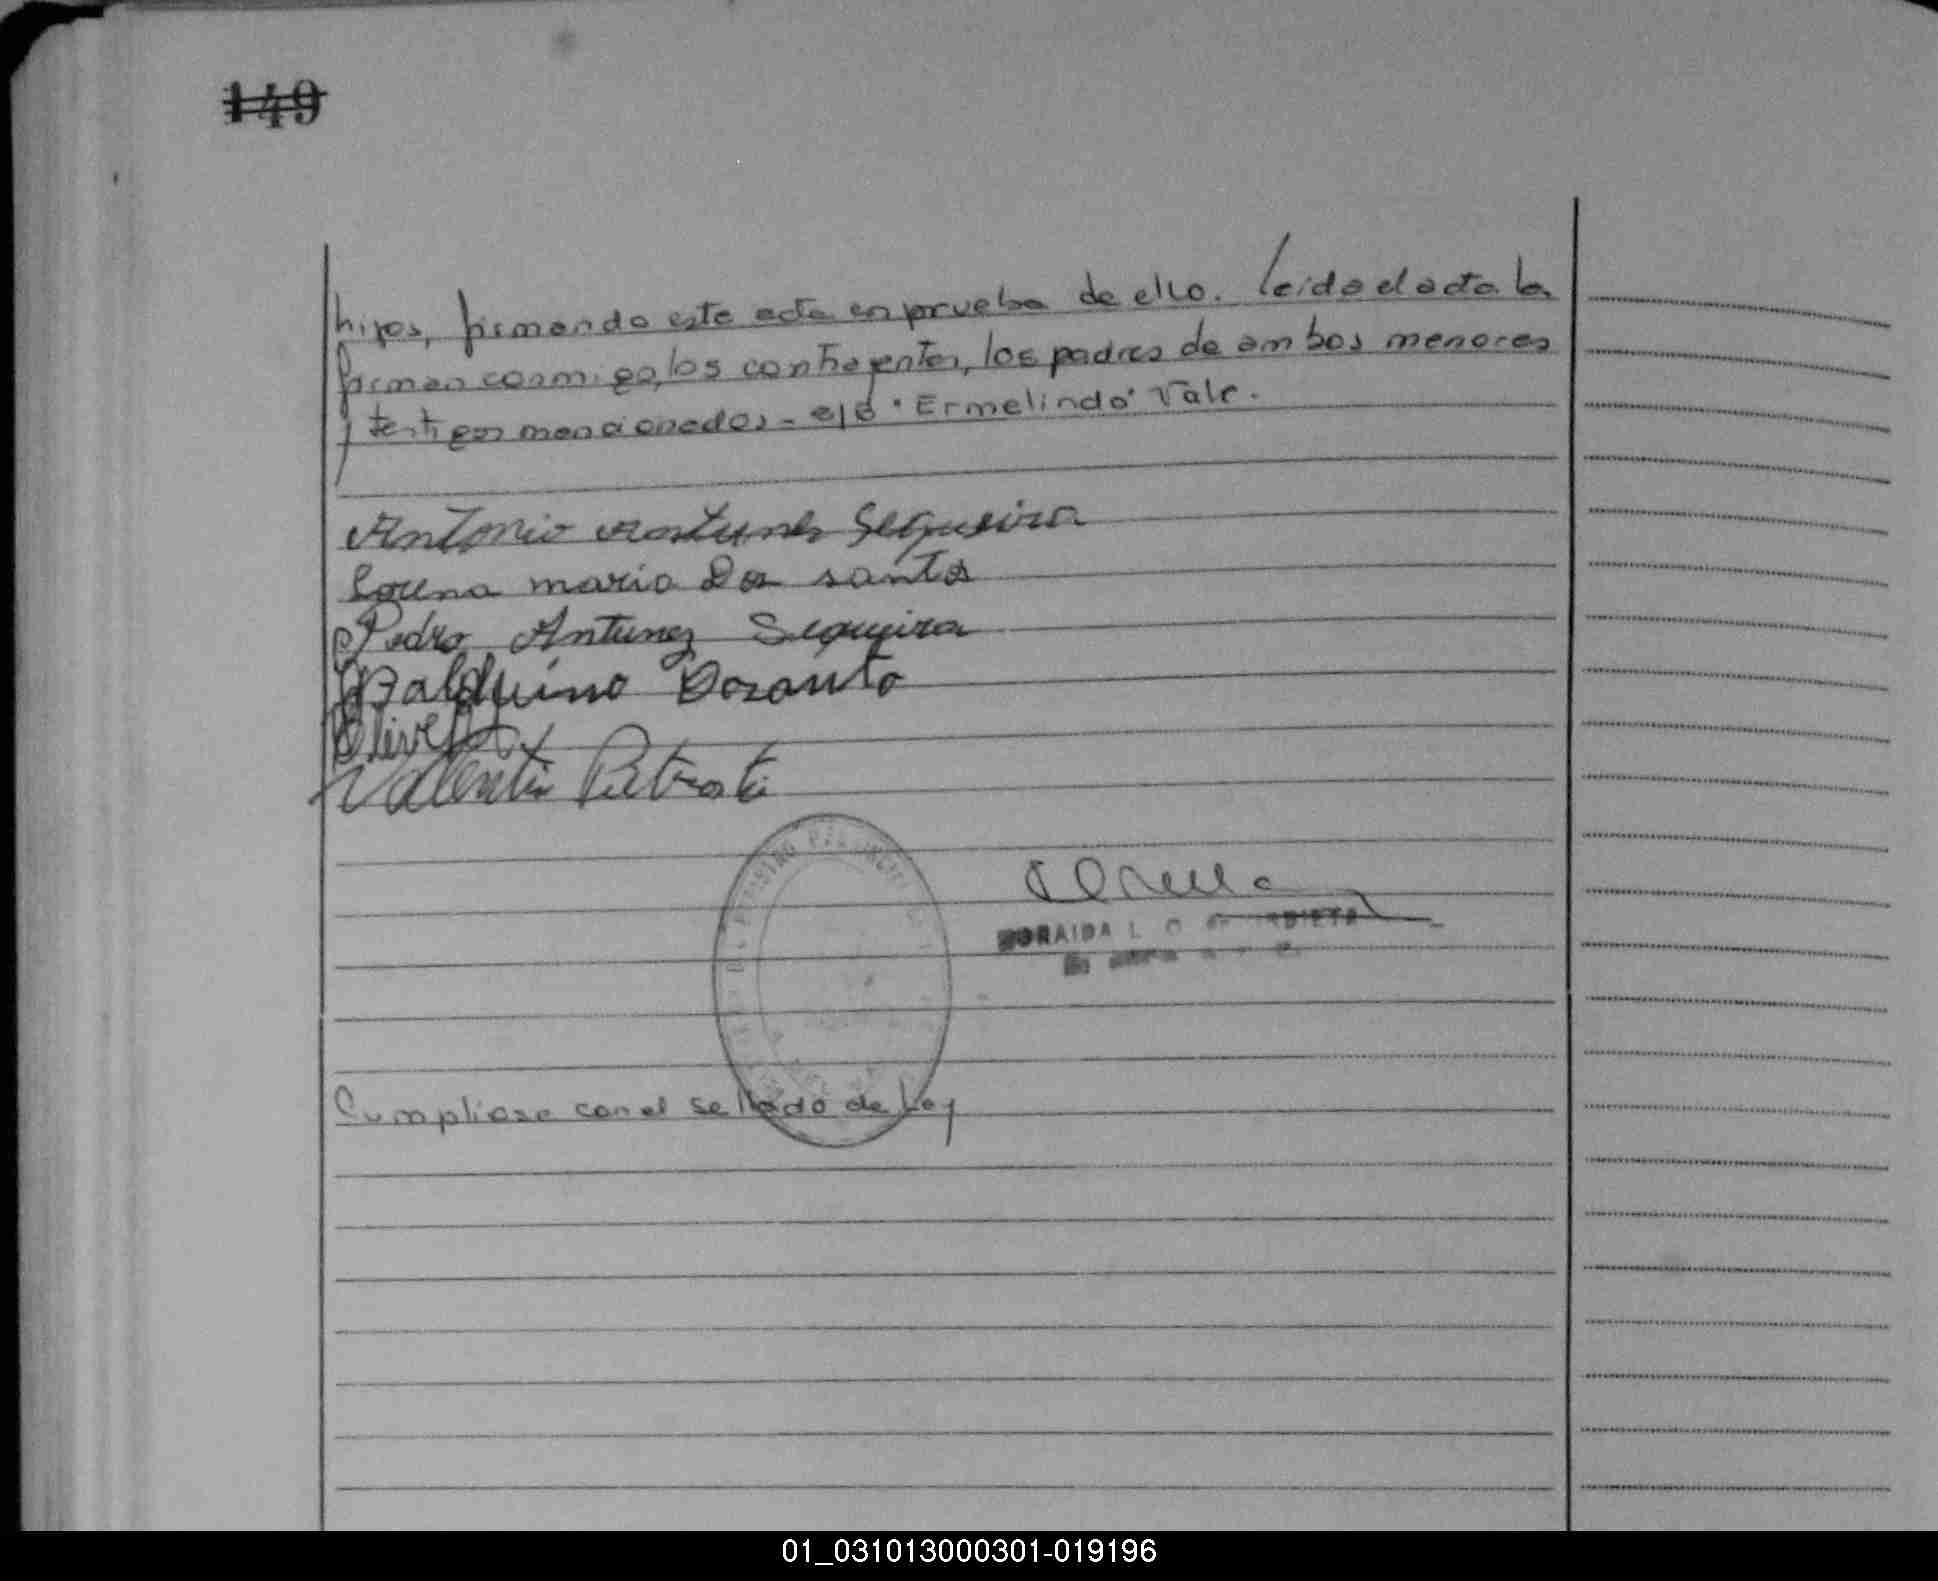 149
hijos, firmando este acta en prueba de ello. leida el acta la
firman conmigo, los contrayentes, los padres de ambos menores
y testigos mencionados - e/l "Ermelindo" Vale.
Antonio Antunes Sequeira
Lorena maria Dos santos
Pedro Antunez Sequeira
Balduino Dosanto
Valentin
ORAIDA L
Cumpliose con el sellado de Ley
01_031013000301-019196